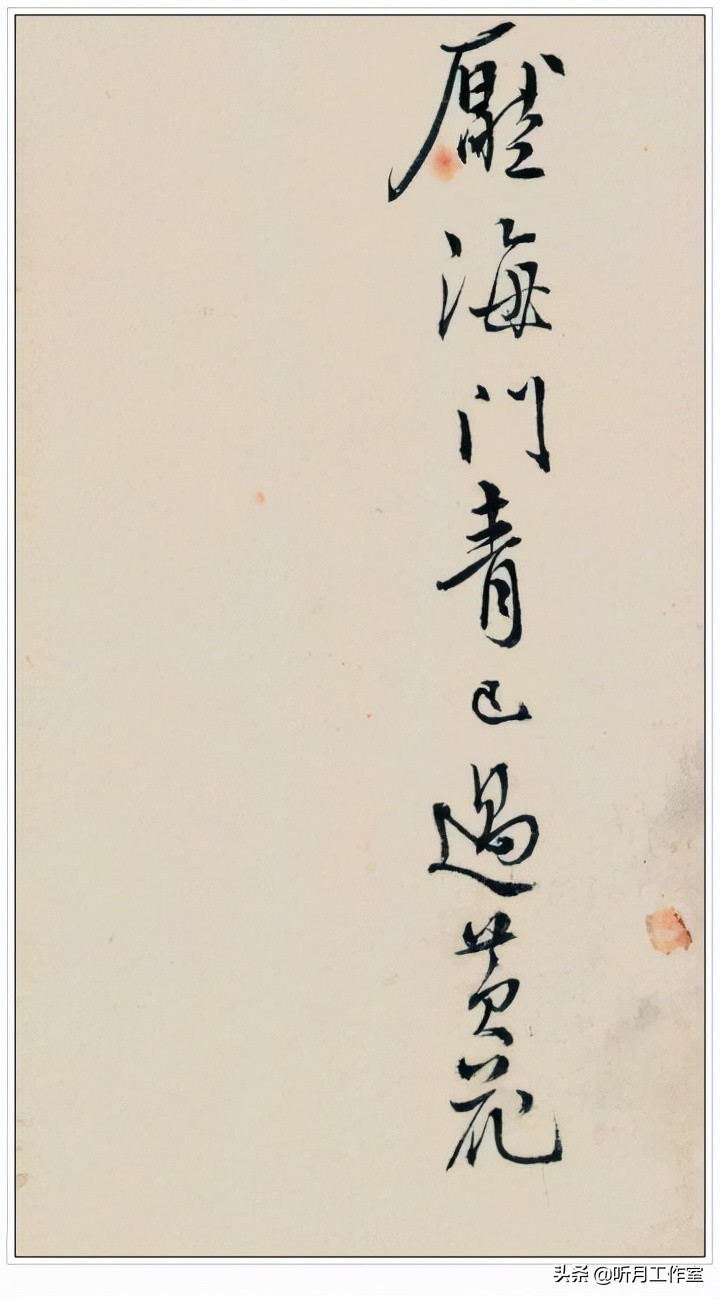 壓海門青已過黃花
头条 @听月工作室